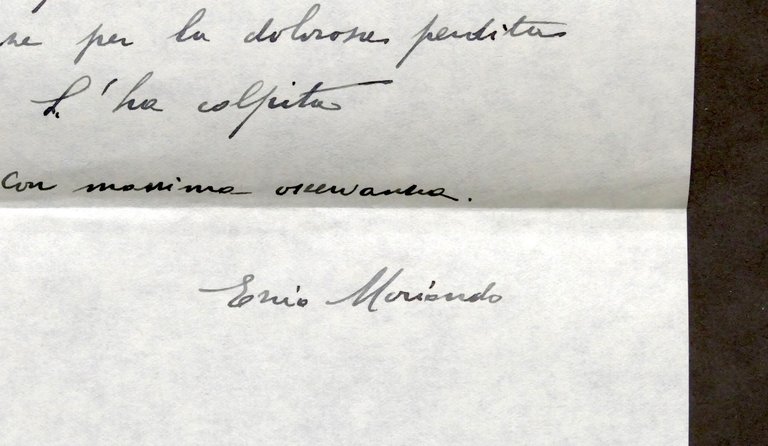 per la dolorosa perdita
L'ha colpita
Con massima osservanza.
Enio Moriondo